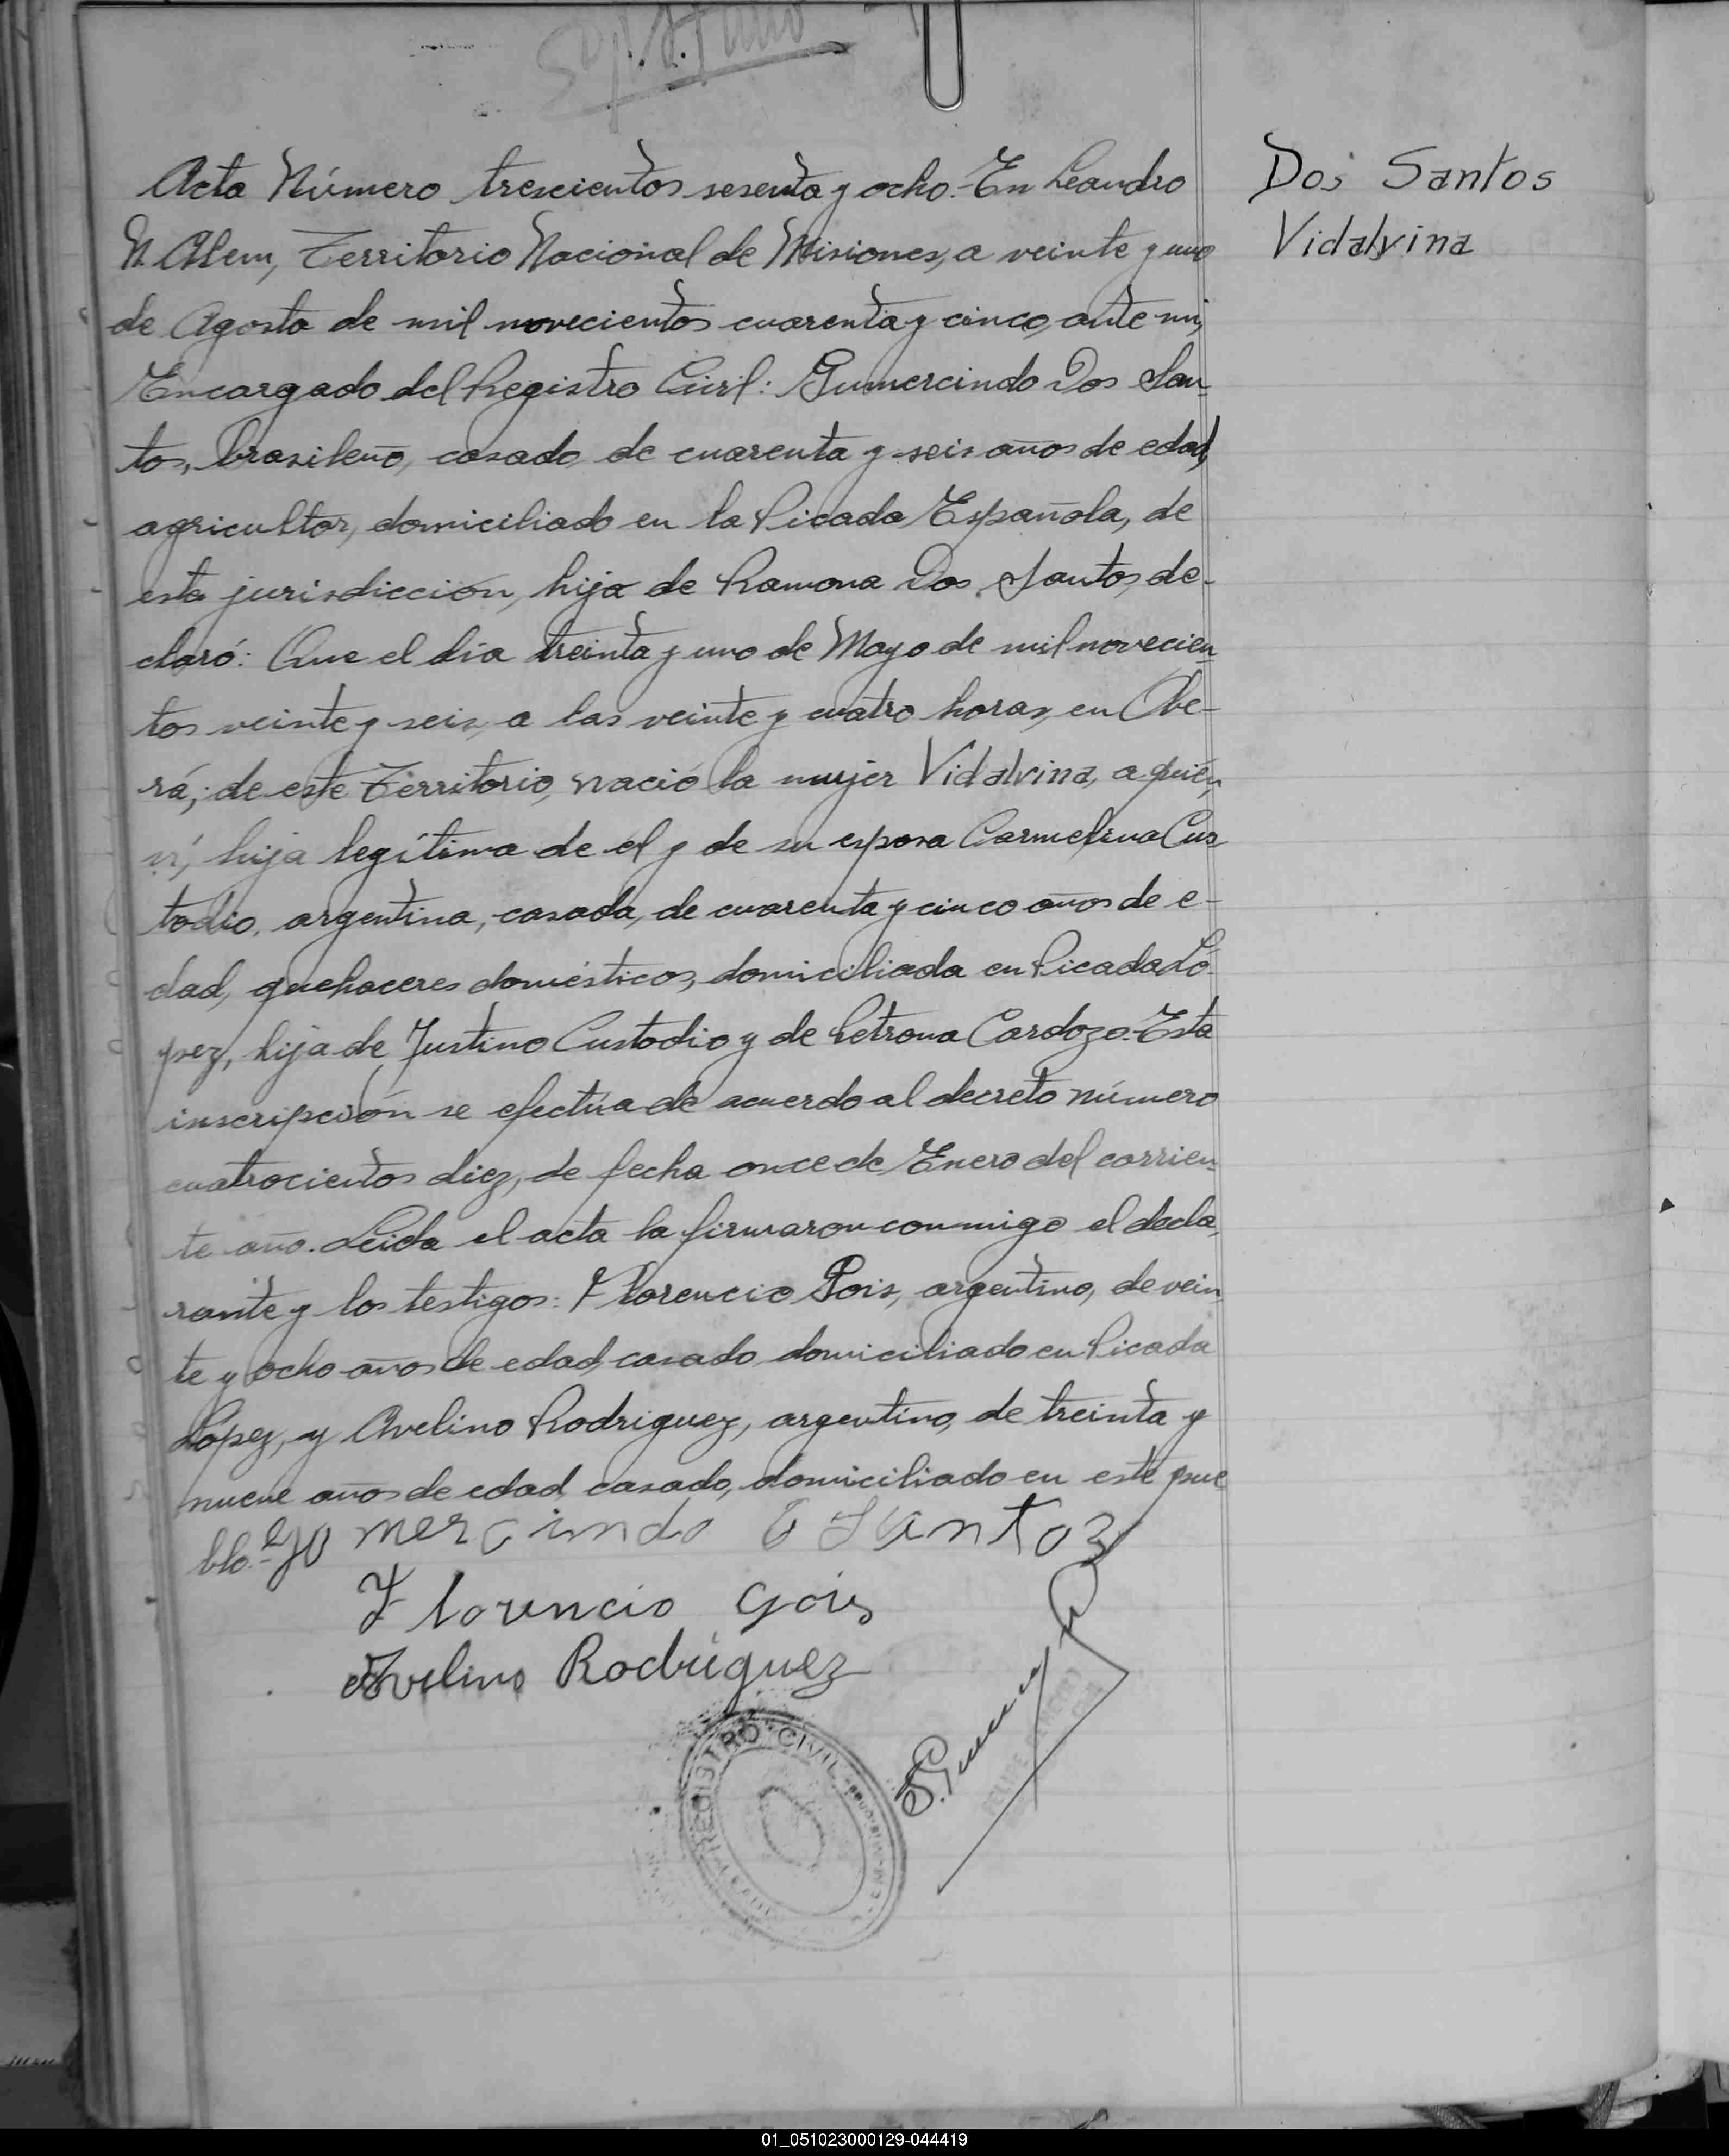 Acta Número trescientos sesenta y ocho.- En Leandro
N. Alem, Territorio Nacional de Misiones, a veinte y uno
de Agosto de mil novecientos cuarenta y cinco, ante mi,
Encargado del Registro Civil: Gumercindo Dos San-
tos, brasileño, casado, de cuarenta y seis años de edad,
agricultor, domiciliado en la Picada Española, de
esta jurisdicción, hijo de Ramona Dos Santos, de-
claró: Que el día treinta y uno de Mayo de mil novecien-
tos veinte y seis, a las veinte y cuatro horas, en Obe-
rá, de este Territorio, nació la mujer Vidalvina, a quien
ví, hija legítima de él y de su esposa Carmelina Cus-
todio, argentina, casada, de cuarenta y cinco años de e-
dad, quehaceres domésticos, domiciliada en Picada Ló-
pez, hija de Justino Custodio y de Petrona Cardozo.- Esta
inscripción se efectúa de acuerdo al decreto número
cuatrocientos diez, de fecha once de Enero del corrien-
te año. Leida el acta la firmaron conmigo el decla-
rante y los testigos: Florencio Gois, argentino, de vein-
te y ocho años de edad, casado, domiciliado en Picada
López, y Avelino Rodriguez, argentino, de treinta y
nueve años de edad, casado, domiciliado en este pue-
blo.-
mercindo Santoz
Florencio Gois
Avelino Rodriguez
REGISTRO CIVIL
Dos Santos
Vidalvina
01_051023000129-044419